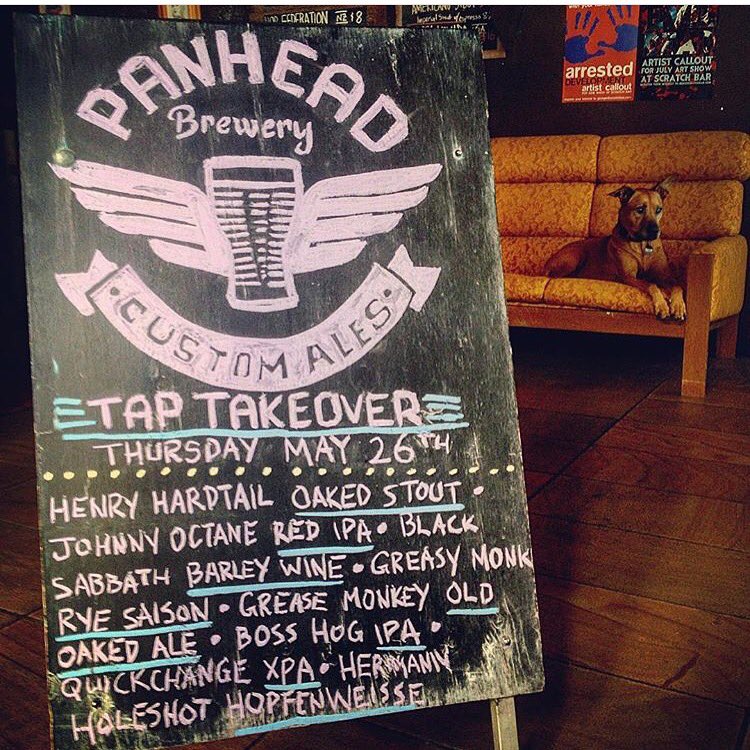 HOP FEDERATION NZ $8
AMERICANO STOUT
Imperial Stout w/ Espresso
arrested
DEVELOPMENT
artist callout
ARTIST CALLOUT
FOR JULY ART SHOW
AT SCRATCH BAR
PANHEAD
Brewery
• CUSTOM ALES •
TAP TAKEOVER
THURSDAY MAY 26TH
HENRY HARDTAIL OAKED STOUT •
JOHNNY OCTANE RED IPA • BLACK
SABBATH BARLEY WINE • GREASY MONK
RYE SAISON • GREASE MONKEY OLD
OAKED ALE • BOSS HOG IPA •
QUICKCHANGE XPA • HERMANN
HOLESHOT HOPFENWEISSE